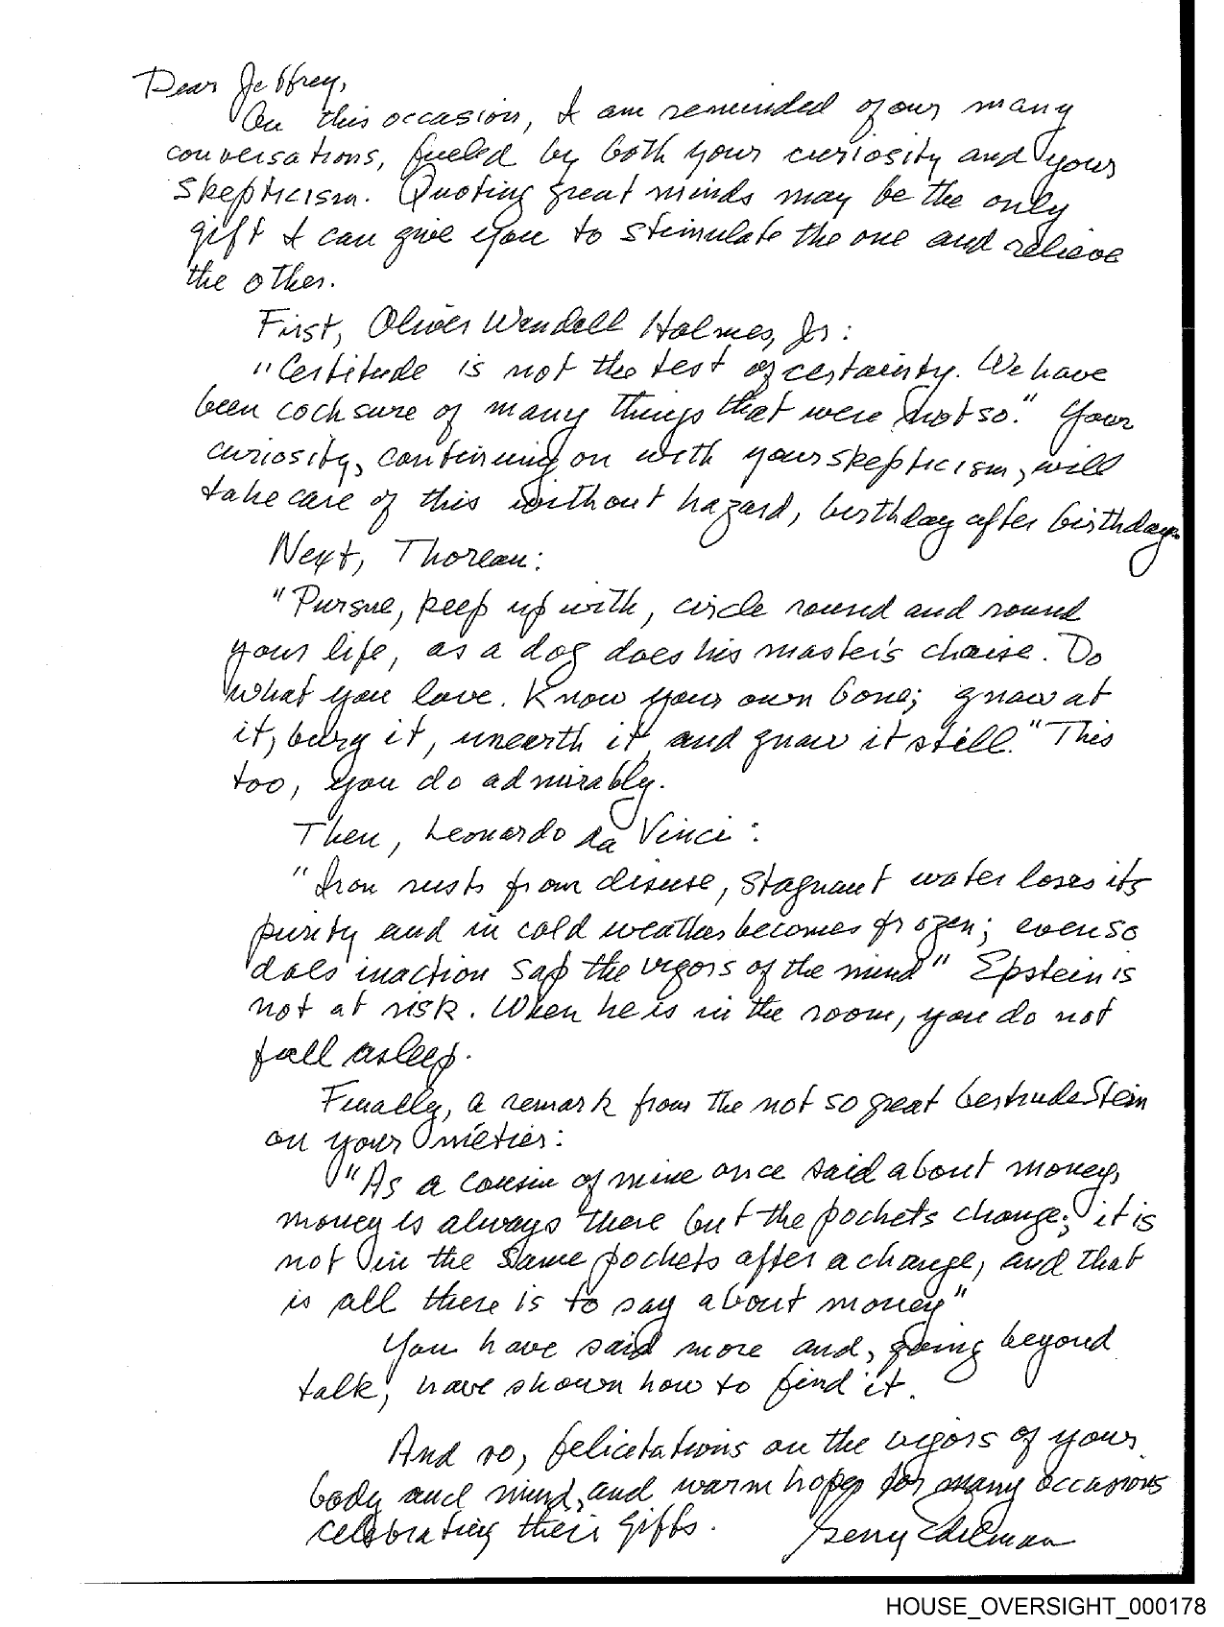 Dear Jeffrey,
On this occasion, I am reminded of our many
conversations, fueled by both your curiosity and your
skepticism. Quoting great minds may be the only
gift I can give you to stimulate the one and relieve
the other.
First, Oliver Wendell Holmes, Jr:
"Certitude is not the test of certainty. We have
been cocksure of many things that were not so." Your
curiosity, continuing on with your skepticism, will
take care of this without hazard, birthday after birthday.
Next, Thoreau:
"Pursue, keep up with, circle round and round
your life, as a dog does his master's chaise. Do
what you love. Know your own bone; gnaw at
it, bury it, unearth it, and gnaw it still." This
too, you do admirably.
Then, Leonardo da Vinci:
"Iron rusts from disuse, stagnant water loses its
purity and in cold weather becomes frozen; even so
does inaction sap the vigors of the mind" Epstein is
not at risk. When he is in the room, you do not
fall asleep.
Finally, a remark from the not so great Gertrude Stein
on your métier:
"As a cousin of mine once said about money,
money is always there but the pockets change; it is
not in the same pockets after a change, and that
is all there is to say about money"
You have said more and, going beyond
talk, have shown how to find it.
And so, felicitations on the vigors of your
body and mind, and warm hopes for many occasions
celebrating their gifts. Gerry Edelman
HOUSE_OVERSIGHT_000178